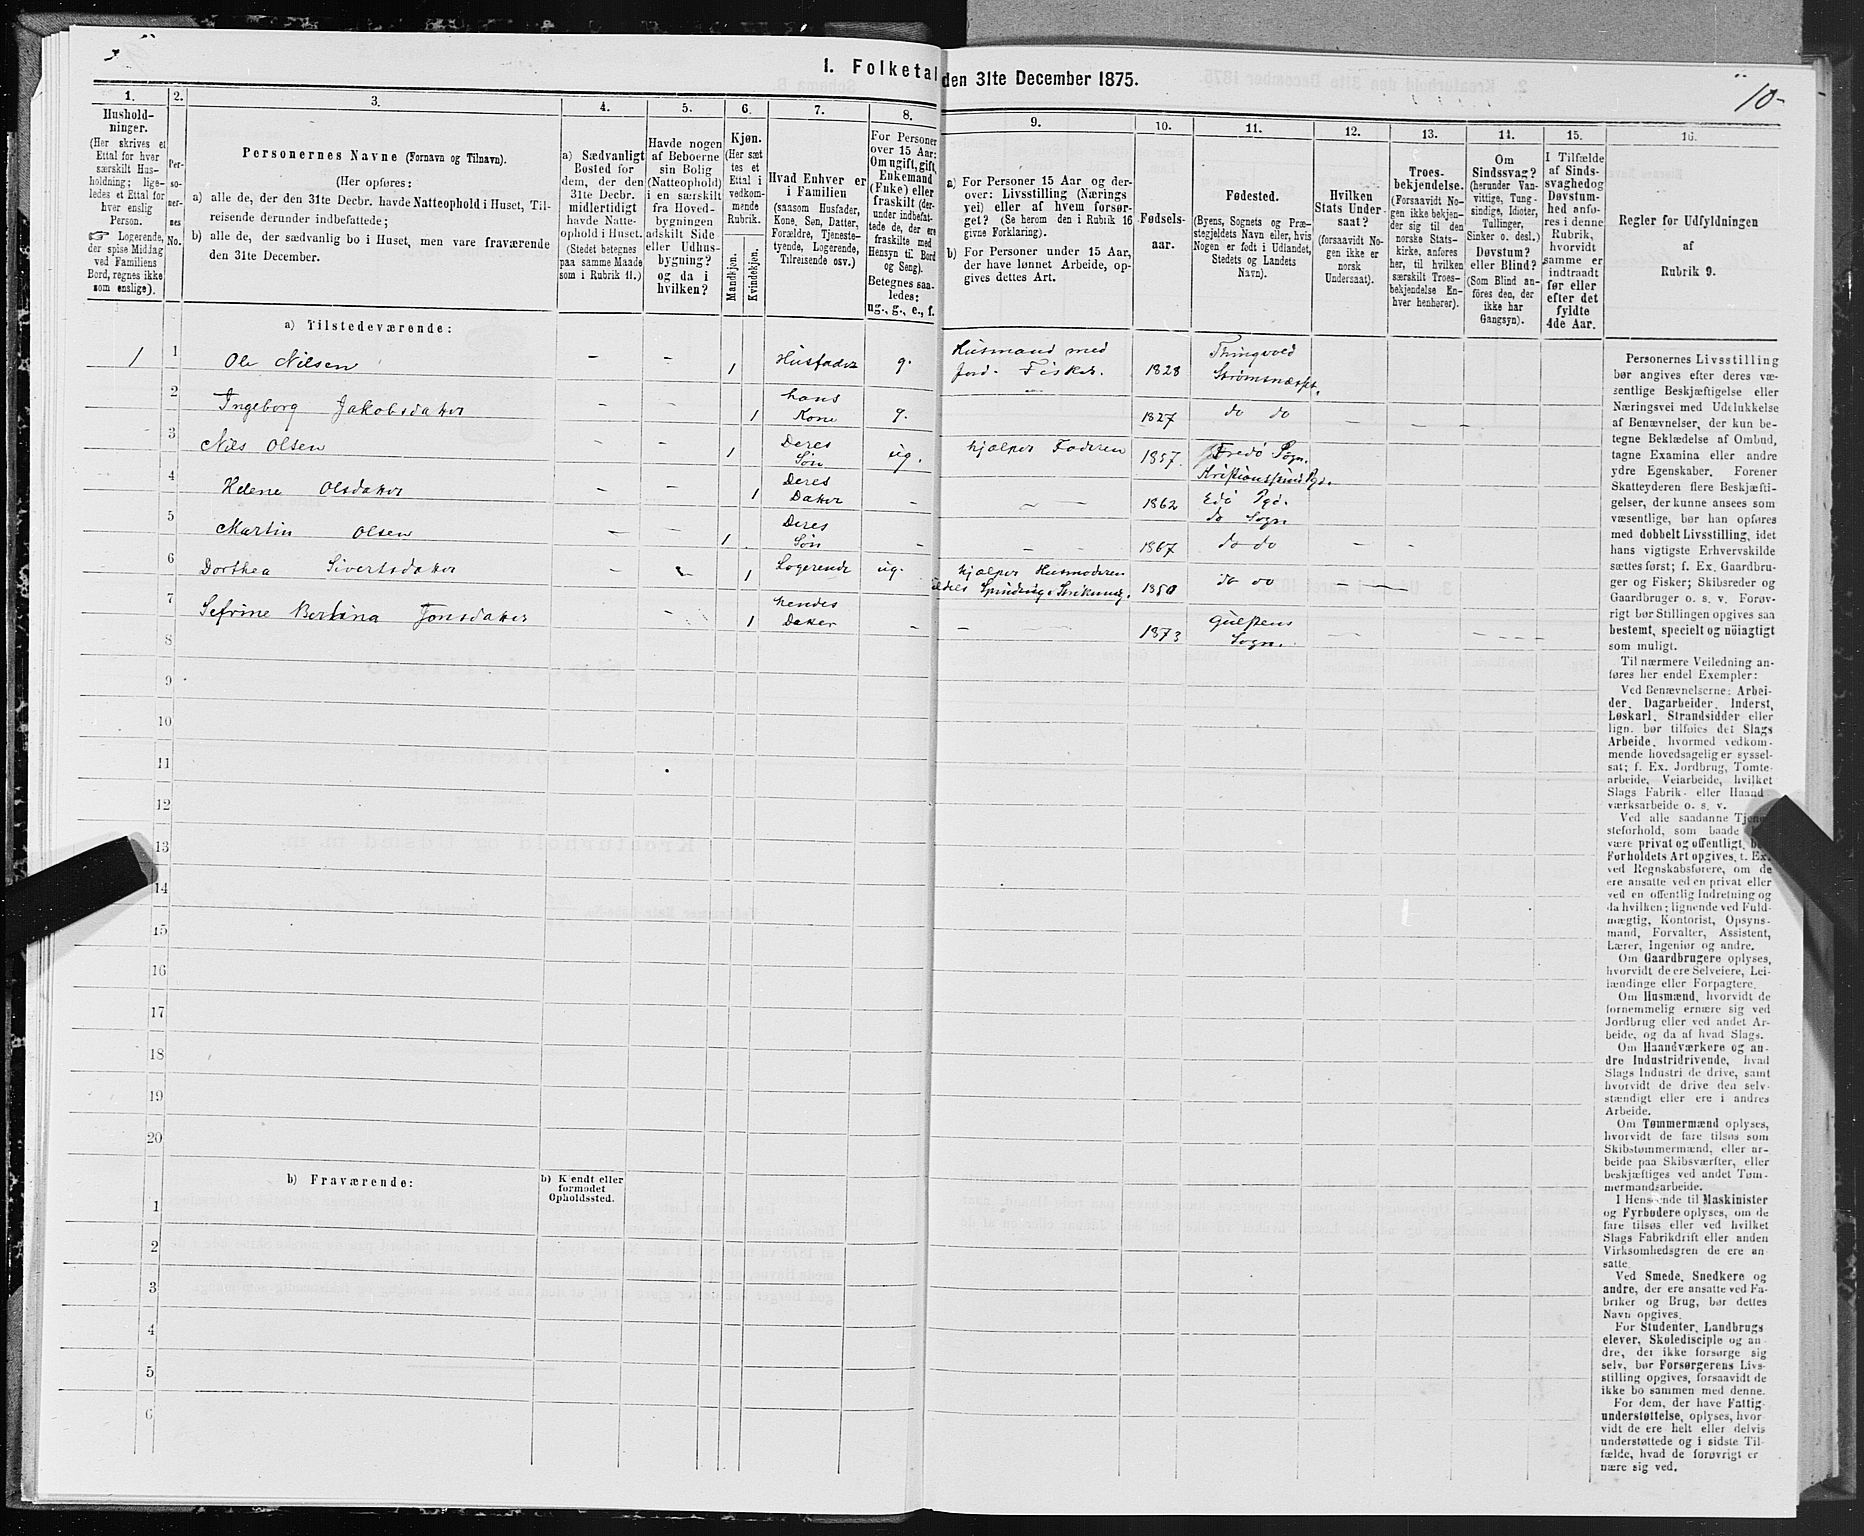 I. Folketal den 31te December 1875.
10-
1.
Hushold-
ninger.
(Her skrives et
Ettal for hver
særskilt Hus-
holdning; lige-
ledes et Ettal for
hver enslig
Person.
☞ Logerende,
der spise Middag
ved Familiens
Bord, regnes ikke
som enslige).
2.
Per-
so-
ner-
nes
No.
3.
Personernes Navne (Fornavn og Tilnavn).
(Her opføres:
a) alle de, der den 31te Decbr. havde Natteophold i Huset, Til-
reisende derunder indbefattede;
b) alle de, der sædvanlig bo i Huset, men vare fraværende
den 31te December.
4.
a) Sædvanligt
Bosted for
dem, der den
31te Decbr.
midlertidigt
havde Natte-
ophold i Huset.
(Stedet betegnes
paa samme Maade
som i Rubrik 11.)
5.
Havde nogen
af Beboerne
sin Bolig
(Natteophold)
i en særskilt
fra Hoved-
bygningen
adskilt Side
eller Udhus-
bygning?
og da i
hvilken?
6.
Kjøn.
(Her sæt
tes et
Ettal i
vedkom-
mende
Rubrik.
Mandkjøn.
Kvindekjøn.
7.
Hvad Enhver er
i Familien
(saasom Husfader,
Kone, Søn, Datter,
Forældre, Tjeneste-
tyende, Logerende,
Tilreisende osv.)
8.
For Personer
over 15 Aar:
Om ugift, gift,
Enkemand
(Enke) eller
fraskilt (der-
under indbefat-
tede de, der ere
fraskilte med
Hensyn til Bord
og Seng).
Betegnes saa-
ledes:
ug., g., e., f.
9.
a) For Personer 15 Aar og der-
over: Livsstilling (Nærings
vei) eller af hvem forsør-
get? (Se herom den i Rubrik 16
givne Forklaring).
b) For Personer under 15 Aar,
der have lønnet Arbeide, op-
gives dettes Art.
10.
Fødsels-
aar.
11.
Fødested.
(Byens, Sognets og Præ-
stegjeldets Navn eller, hvis
Nogen er født i Udlandet,
Stedets og Landets
Navn).
12.
Hvilken
Stats Under-
saat?
(forsaavidt No-
gen ikke er
norsk
Undersaat).
13.
Troes-
bekjendelse.
(Forsaavidt No-
gen ikke bekjen-
der sig til den
norske Stats-
kirke, anføres
her, til hvilken
særskilt Troes-
bekjendelse En-
hver henhører).
14.
Om
Sindssvag?
(herunder Van-
vittige, Tung-
sindige, Idioter,
Tullinger,
Sinker o. desl.)
Døvstum?
eller Blind?
(Som Blind an-
føres den, der
ikke har
Gangsyn).
15.
I Tilfælde
af Sinds-
svaghed og
Døvstum-
hed anfø-
res i denne
Rubrik,
hvorvidt
samme er
indtraadt
før eller
efter det
fyldte
4de Aar.
16.
Regler for Udfyldningen
af
Rubrik 9.
a) Tilstedeværende:
1 1 Ole Nilsen – – 1 Husfader g. Husmand med Jord. Fisker. 1828 Thingvold Strømsnæsset.
2 Ingeborg Jakobsdatter – – 1 hans Kone g. – 1827 do do – – –
3 Nils Olsen – – 1 Deres Søn ug. hjælper Faderen 1857. Fredø Sogn. Kristianssund Pgd.
4 Helene Olsdatter – – 1 Deres Datter – – – 1862 Edø Pgd. do Sogn
5 Martin Olsen – – 1 Deres Søn – – – 1867 do do – –
6 Dorthea Sivertsdatter – – 1 Logerende ug. hjælper Husmoderen Spinding, Strikning. 1850 do do – – –
7 Sefrine Bertina Jonsdatter – – 1 hendes Datter – – – – 1873 Sogn. – – – – – –
8
9
10
11
12
13
14
15
16
17
18
19
20
b) Fraværende:
b) Kjendt eller
formodet
Opholdssted.
1
2
3
4
5
6
Personernes Livsstilling
bør angives efter deres væ-
sentlige Beskjæftigelse eller
Næringsvei med Udelukkelse
af Benævnelser, der kun be-
tegne Beklædelse af Ombud,
tagne Examina eller andre
ydre Egenskaber. Forener
Skatteyderen flere Beskjæfti-
gelser, der kunne ansees som
væsentlige, bør han opføres
med dobbelt Livsstilling, idet
hans vigtigste Erhvervskilde
sættes først; f. Ex. Gaardbru-
ger og Fisker; Skibsreder og
Gaardbruger o. s. v. Forøv-
rigt bør Stillingen opgives saa
bestemt, specielt og nöiagtigt
som muligt.
Til nærmere Veiledning an-
føres her endel Exempler:
Ved Benævnelserne: Arbei-
der, Dagarbeider, Inderst,
Løskarl, Strandsidder eller
lign. bør tilføies det Slags
Arbeide, hvormed vedkom-
mende hovedsagelig er syssel-
sat; f. Ex. Jordbrug, Tomte-
arbeide, Veiarbeide, hvilket
Slags Fabrik- eller Haand-
værksarbeide o. s. v.
Ved alle saadanne Tjene-
steforhold, som baade
være privat og offentligt,
Forholdets Art opgives, t. Ex.
ved Regnskabsførere, om de
ere ansatte ved en privat eller
ved en offentlig Indretning og
da hvilken; lignende ved Fuld-
mægtig, Kontorist, Opsyns-
mand, Forvalter, Assistent,
Lærer, Ingeniør og andre.
Om Gaardbrugere oplyses,
hvorvidt de ere Selveiere, Lei-
lændinge eller Forpagtere.
Om Husmænd, hvorvidt de
fornemmelig ernære sig ved
Jordbrug eller ved andet Ar-
beide, og da af hvad Slags.
Om Haandværkere og an-
dre Industridrivende, hvad
Slags Industri de drive, samt
hvorvidt de drive den selv-
stændigt eller ere i andres
Arbeide.
Om Tømmermænd oplyses,
hvorvidt de fare tilsøs som
Skibstømmermænd, eller ar-
beide paa Skibsværfter, eller
beskjæftiges ved andet Tøm-
mermandsarbeide.
I Henseende til Maskinister
og Fyrbødere oplyses, om de
fare tilsøs eller ved hvilket
Slags Fabrikdrift eller anden
Virksomhedsgren de ere an-
satte.
Ved Smede, Snedkere og
andre, der ere ansatte ved Fa-
briker og Brug, bør dettes
Navn opgives.
For Studenter, Landbrugs
elever, Skoledisciple og an-
dre, der ikke forsørge sig
selv, bør Forsørgerens Livs-
stilling opgives, forsaavidt de
ikke bo sammen med denne.
For dem, der have Fattig-
understøttelse, oplyses, hvor-
vidt de ere helt eller delvis
understøttede og i sidste Til-
fælde, hvad de forøvrigt er-
nære sig ved.